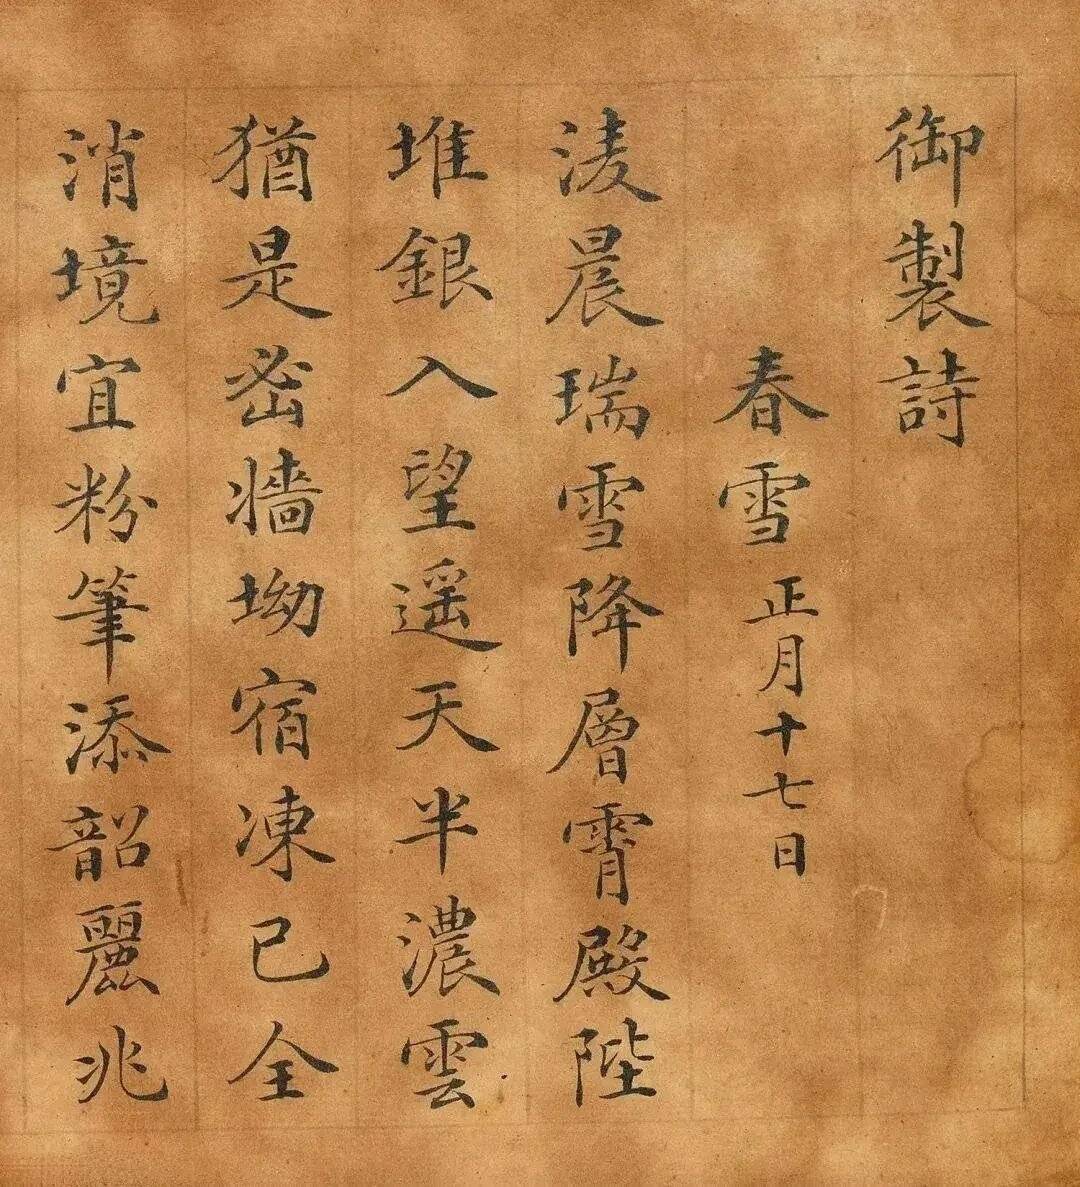 御製詩
春雪正月十七日
淩晨瑞雪降層霄殿陛
堆銀入望遥天半濃雲
猶是密墻坳宿凍已全
消境宜粉筆添韶麗兆